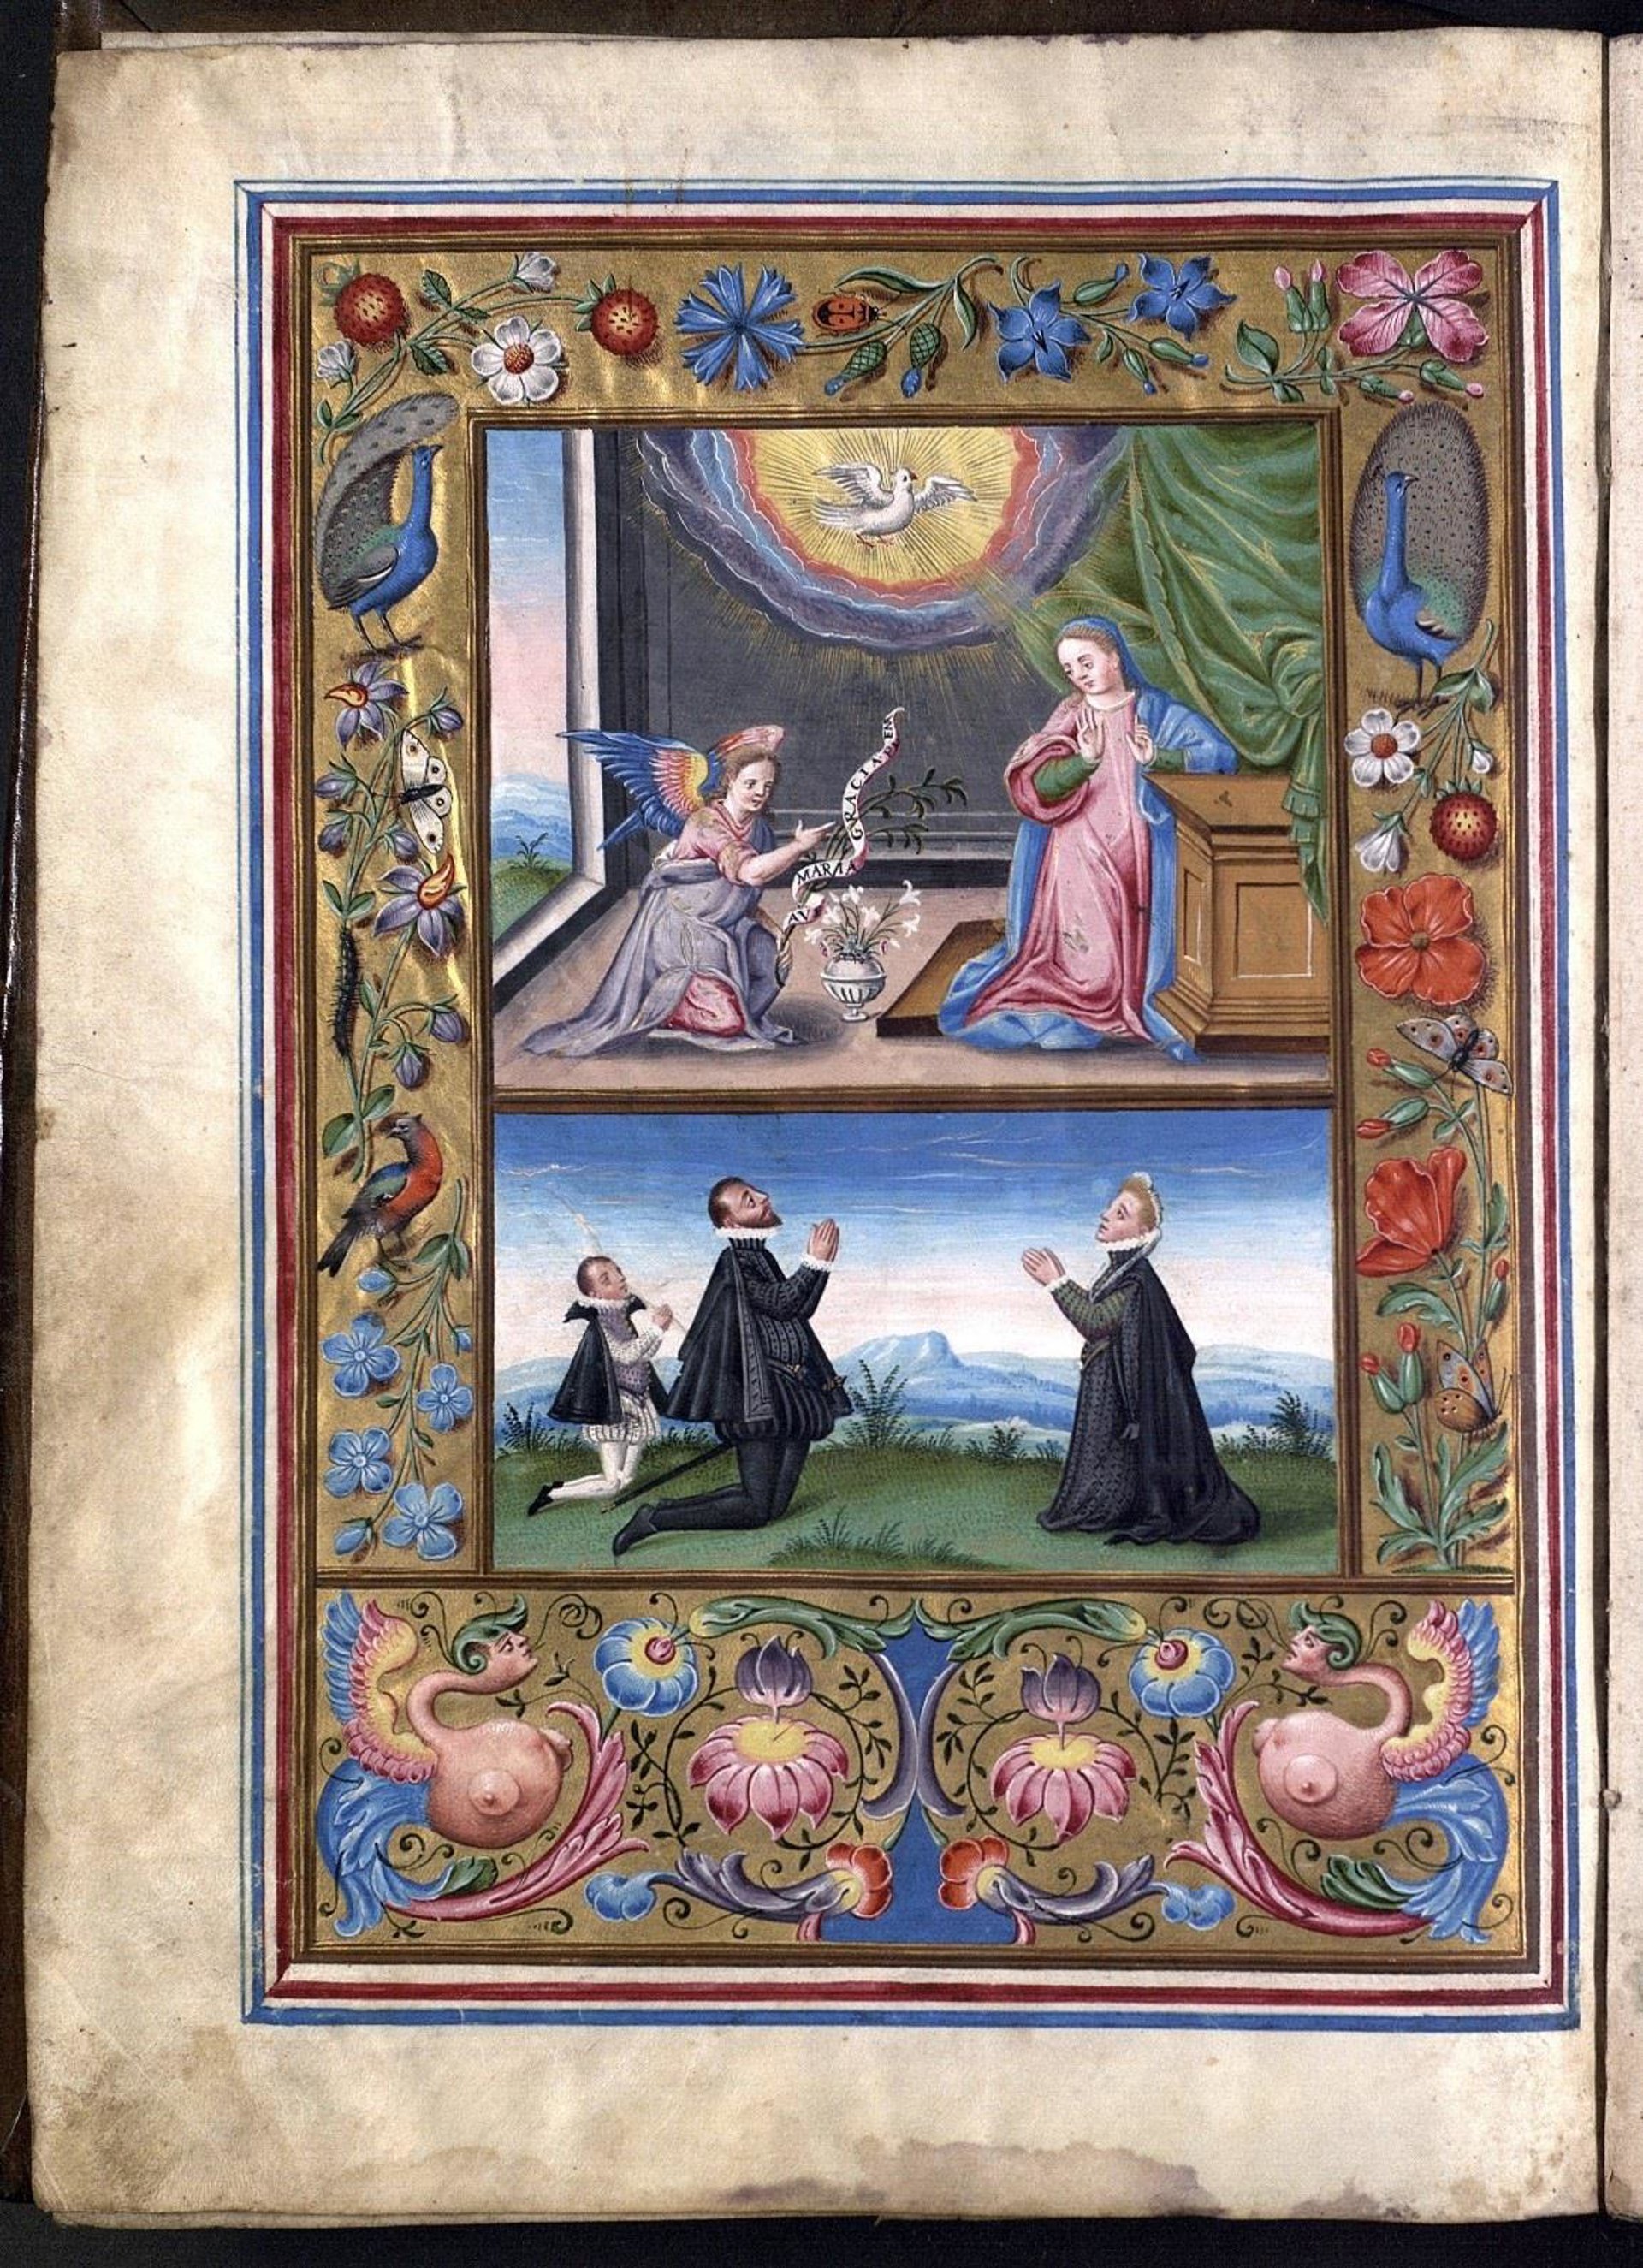 AV MARIA GRACIA PEN